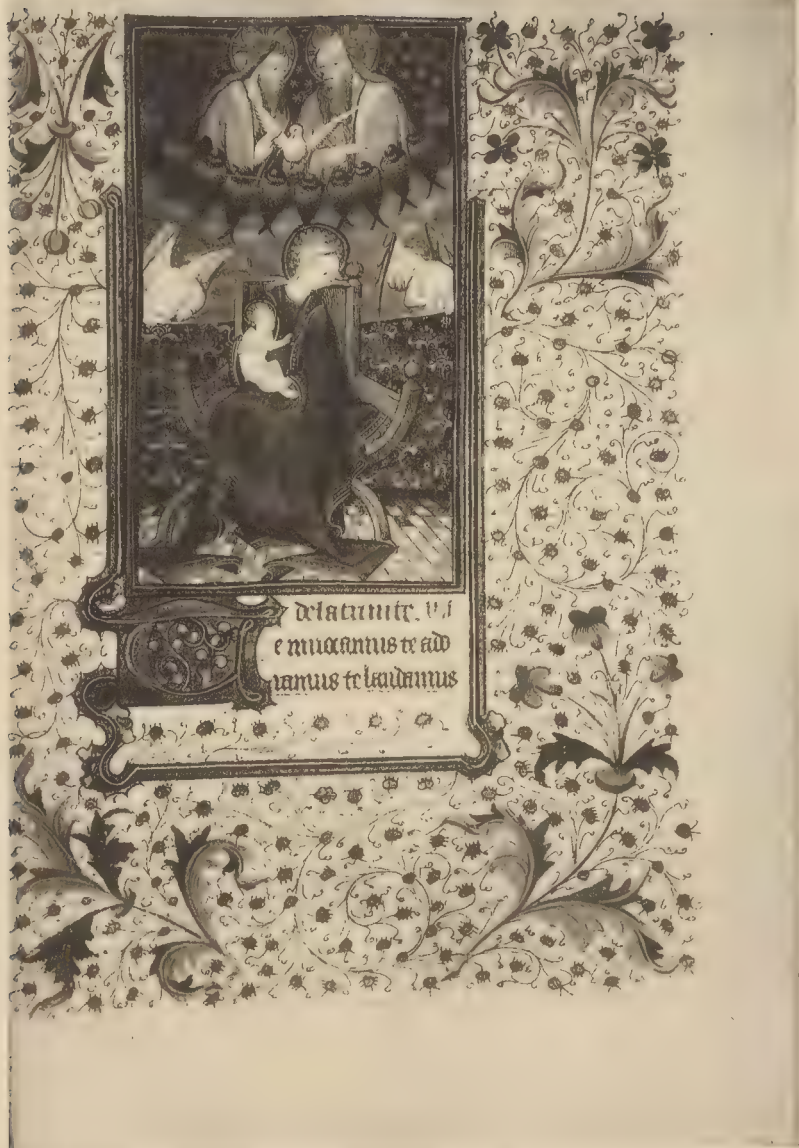 de la trinite.
Te inuocamus te ado
ramus te laudamus